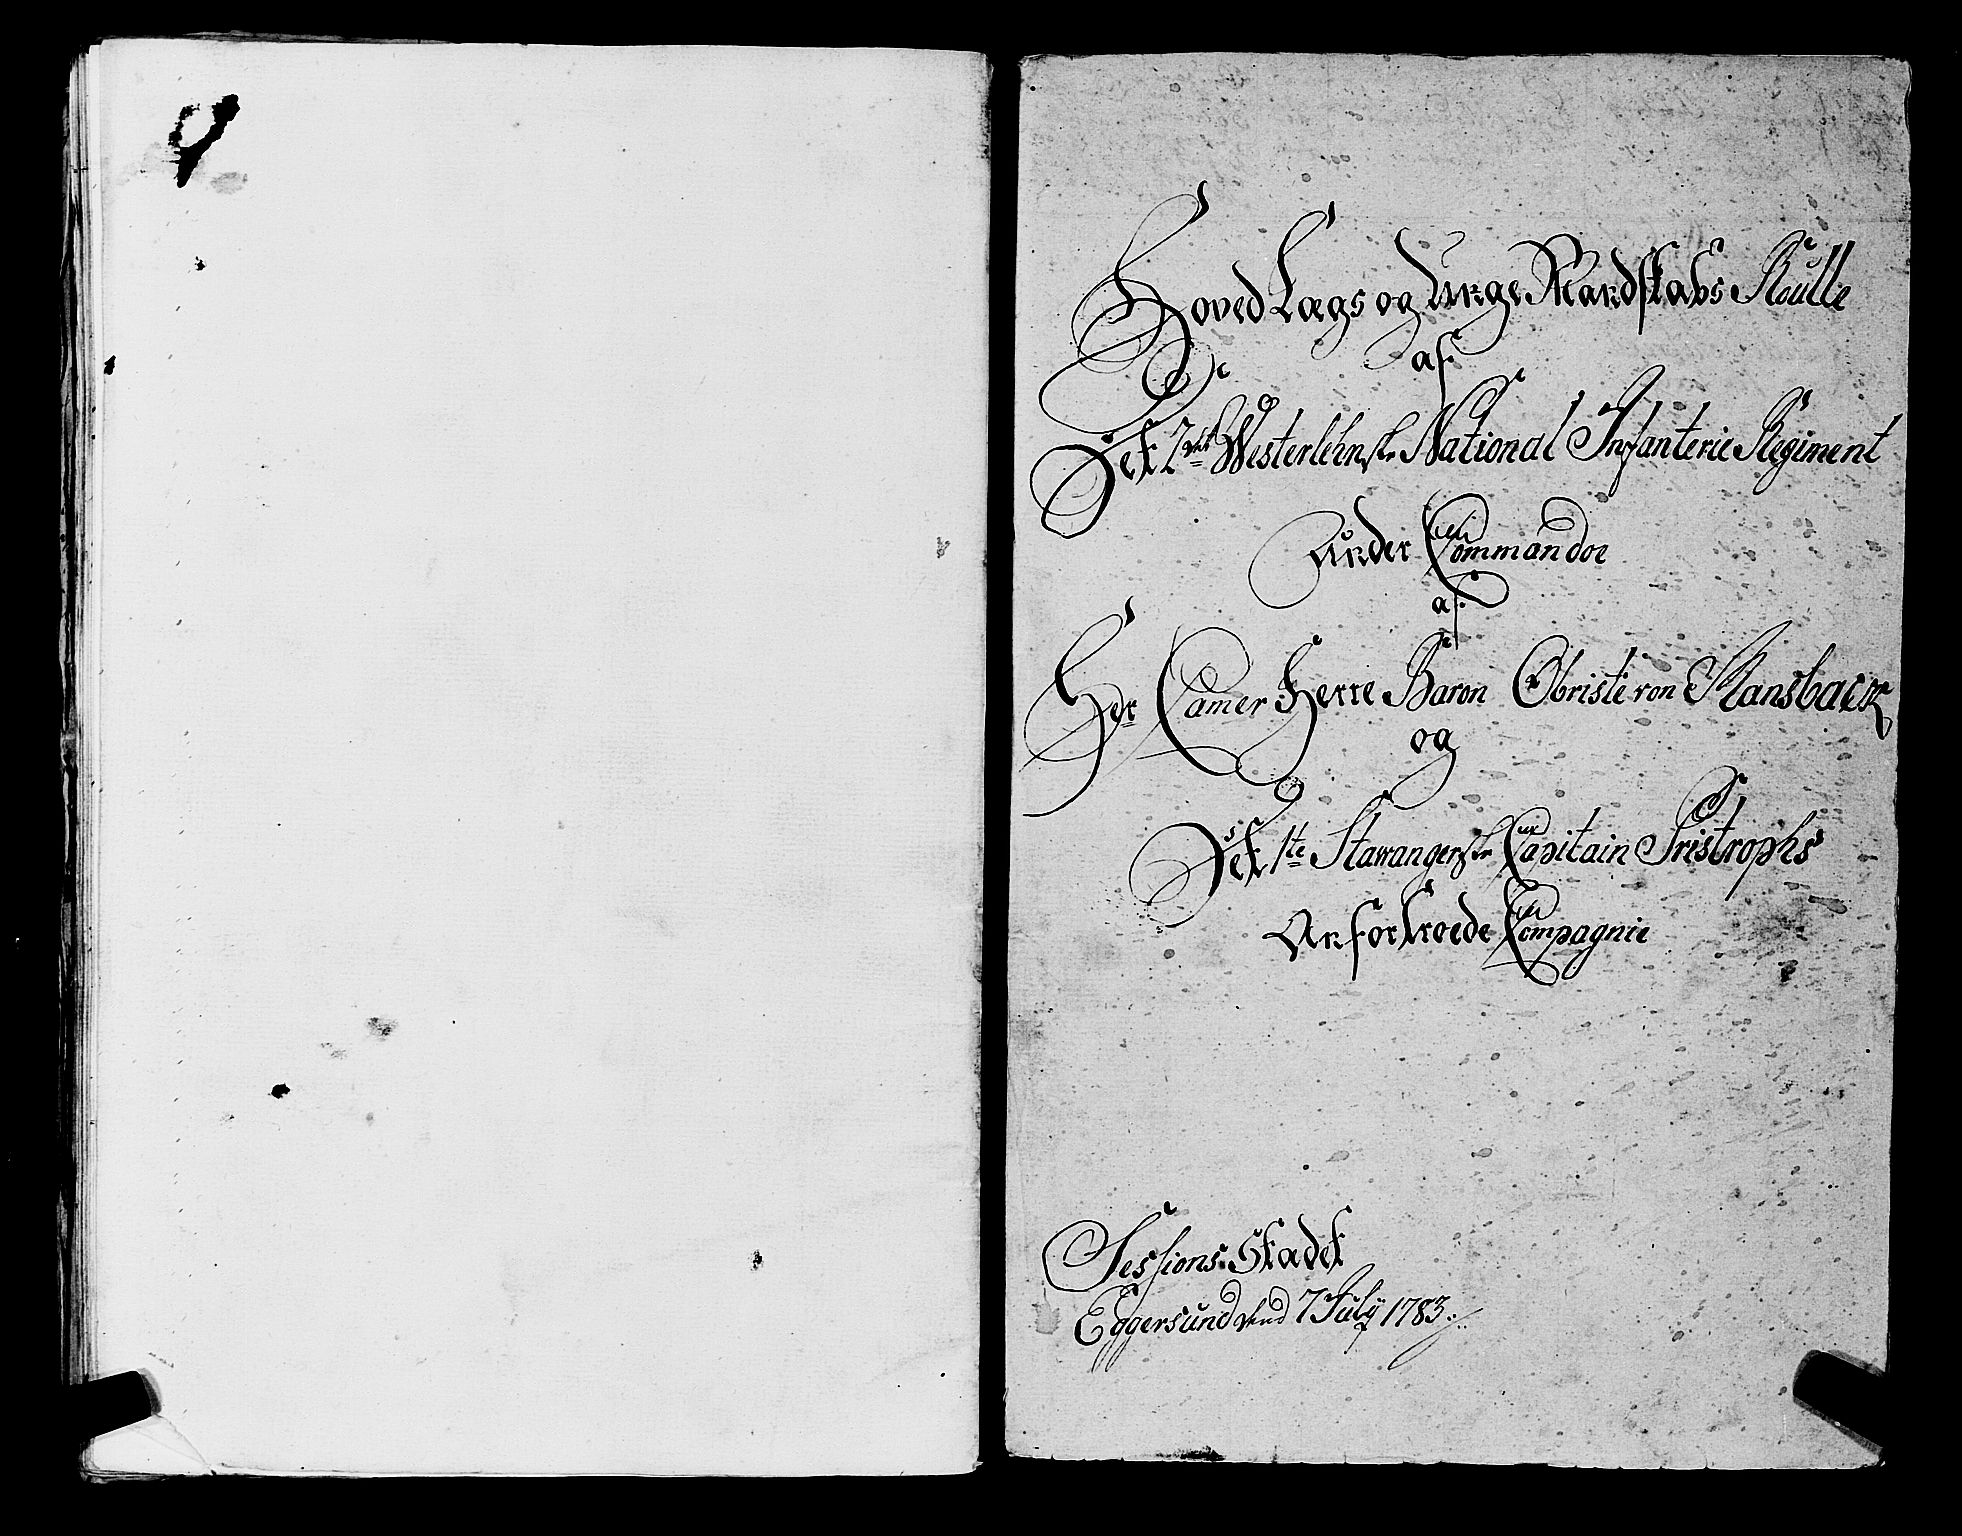 Hoved Lægs og Unge Mandskabs Roulle
af
Det 2det Westerlehnske National Infanterie Regiment
Under Commandoe
af
Her Camer Herre Baron Obriste von Mansbach
og
Det 1te Stawangerske Capitain Tristrophs
Anfortroede Compagnie
Sessions Stædet
Eggersund dend 7 July 1783